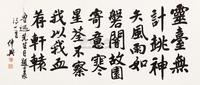 靈臺無
計逃神
矢風雨如
磐闇故園
寄意寒
星荃不察
我以我血
荐軒轅